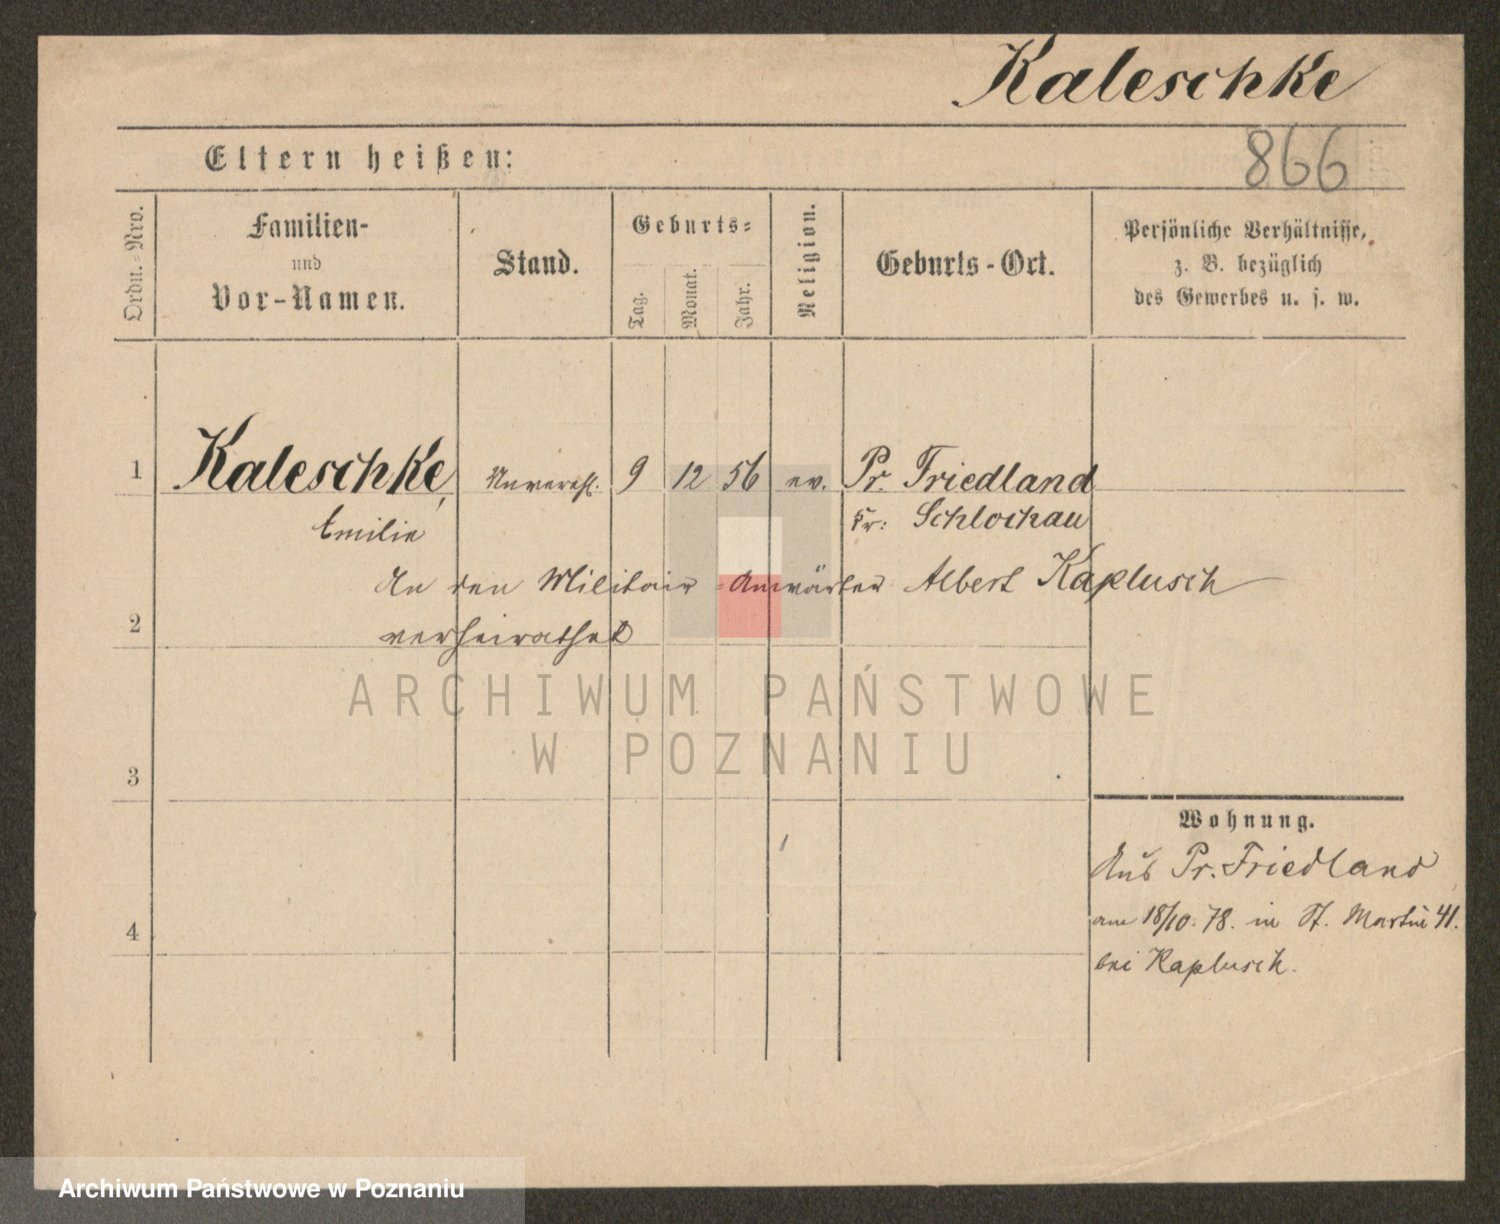 Kaleschke
866
Eltern heißen:
Ordn.-Nro.
Familien-
und
Vor-Namen.
Stand.
Geburts-
Tag.
Monat.
Jahr.
Religion.
Geburts-Ort.
Persönliche Verhältnisse,
z. B. bezüglich
des Gewerbes u. s. w.
1 Kaleschke, Unverehl. 9 12 56 ev. Pr. Friedland
Emilie Kr: Schlochau
An den Militair-Anwärter Albert Kaplusch
2 verheirathet
ARCHIWUM PAŃSTWOWE
W POZNANIU
3
Wohnung.
Aus Pr. Friedland
am 18/10. 78. in St. Martin 41.
4
bei Kaplusch.
Archiwum Państwowe w Poznaniu